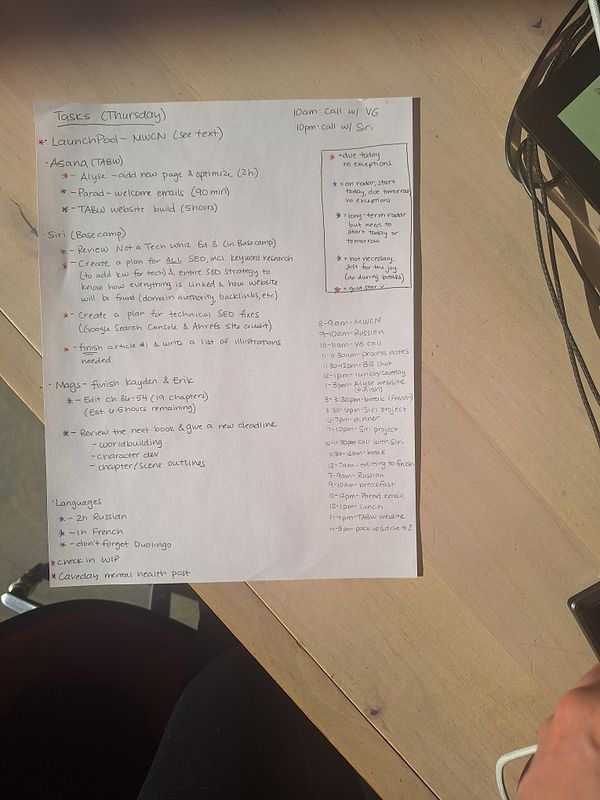 Tasks (Thursday)
* LaunchPod - MWCN (see text)
· Asana (TABW)
* - Alyse - add new page & optimize (2h)
* - Parad - welcome emails (90 min)
* - TABW website build (5 hours)
· Siri (Basecamp)
* - Review Not a Tech Whiz Ed 3 (in Basecamp)
* - Create a plan for ALL SEO, incl. keyword research
(to add kw for tech) & entire SEO strategy to
know how everything is linked & how website
will be found (domain authority, backlinks, etc)
* - Create a plan for technical SEO fixes
(Google Search Console & Ahrefs site audit)
* - finish article #1 & write a list of illustrations
needed
· Mags - finish Kayden & Erik
* - Edit ch. 36-54 (19 chapters)
(Est 6.5 hours remaining)
* - Review the next book & give a new deadline
- worldbuilding
- character dev
- chapter/scene outlines
· Languages
* - 2h Russian
* - 1h French
* - don't forget Duolingo
* check in WIP
* Caveday mental health past
10am: Call w/ VG
10pm: Call w/ Siri
* = due today
no exceptions
* = on radar, start
today, due tomorrow
no exceptions
* = long-term radar
but need to
start today or
tomorrow
* = not necessary,
just for the joy
(do during breaks)
* = gold star
8-9am - MWCN
9-10am - Russian
10-11am - VG call
11-11:30am - process notes
11:30-12pm - shot
12-1pm - lunch/caveday
1-3pm - Alyse website
3-3:30pm - break (French)
3:30-6pm - Siri project
6-7pm - dinner
7-10pm - Siri project
10-11:30pm call with Siri
11:30-12am - break
12-7am - editing to finish
7-9am - Russian
9-10am - breakfast
10-12pm - Parad email
12-1pm - lunch
1-4pm - TABW website
4-5pm - pack up & drive to Z